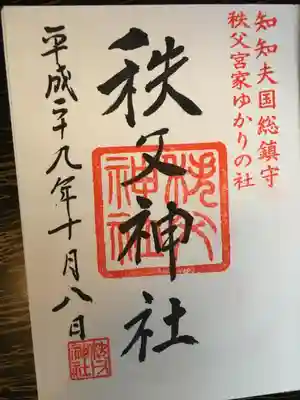 知知夫国総鎮守
秩父宮家ゆかりの社
秩父神社
秩父
神社
平成二十九年十月八日
秩父
神社